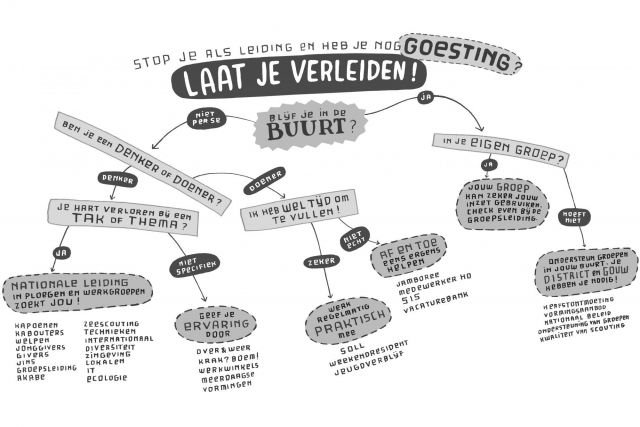 STOP JE ALS LEIDING EN HEB JE NOG GOESTING?
LAAT JE VERLEIDEN!
BLIJF JE IN DE
BUURT?
NIET
PER SE
JA
BEN JE EEN DENKER OF DOENER?
IN JE EIGEN GROEP?
DENKER
DOENER
JA
HOEFT
NIET
JE HART VERLOREN BIJ EEN
TAK OF THEMA?
IK HEB WEL TIJD OM
TE VULLEN!
JOUW GROEP
KAN ZEKER JOUW
INZET GEBRUIKEN.
CHECK EVEN BIJ DE
GROEPSLEIDING.
JA
NIET
SPECIFIEK
ZEKER
NIET
ECHT
NATIONALE LEIDING
IN PLOEGEN EN WERKGROEPEN
ZOEKT JOU!
KAPOENEN
KABOUTERS
WELPEN
JONGGIVERS
GIVERS
JINS
GROEPSLEIDING
AKABE
ZEESCOUTING
TECHNIEKEN
INTERNATIONAAL
DIVERSITEIT
ZINGEVING
LOKALEN
IT
ECOLOGIE
GEEF JE
ERVARING
DOOR
OVER & WEER
KRAK? BOEM!
WERKWINKELS
MEERDAAGSE
VORMINGEN
WERK
REGELMATIG
PRAKTISCH
MEE
SOLL
WEEKENDRESIDENT
JEUGDVERBLIJF
AF EN TOE
EENS ERGENS
HELPEN
JAMBOREE
MEDEWERKER HO
SIS
VACATUREBANK
ONDERSTEUN GROEPEN
IN JOUW BUURT. JE
DISTRICT EN GOUW
HEBBEN JE NODIG!
HERFSTONTMOETING
VORMINGSAANBOD
NATIONAAL BELEID
ONDERSTEUNING VAN GROEPEN
KWALITEIT VAN SCOUTING